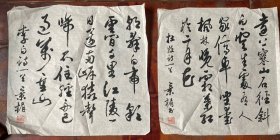 远上寒山石径斜
白云生处有人
家停车坐爱
枫林晚霜叶红
于二月花
杜牧诗一首
朝辞白帝彩
云间千里江陵
一日还两岸猿声
啼不住轻舟已
过万重山
李白诗一首